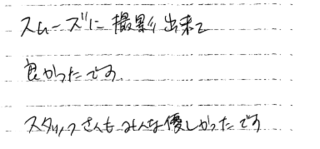 スムーズに撮影出来て
良かったです
スタッフさんもみんな優しかったです